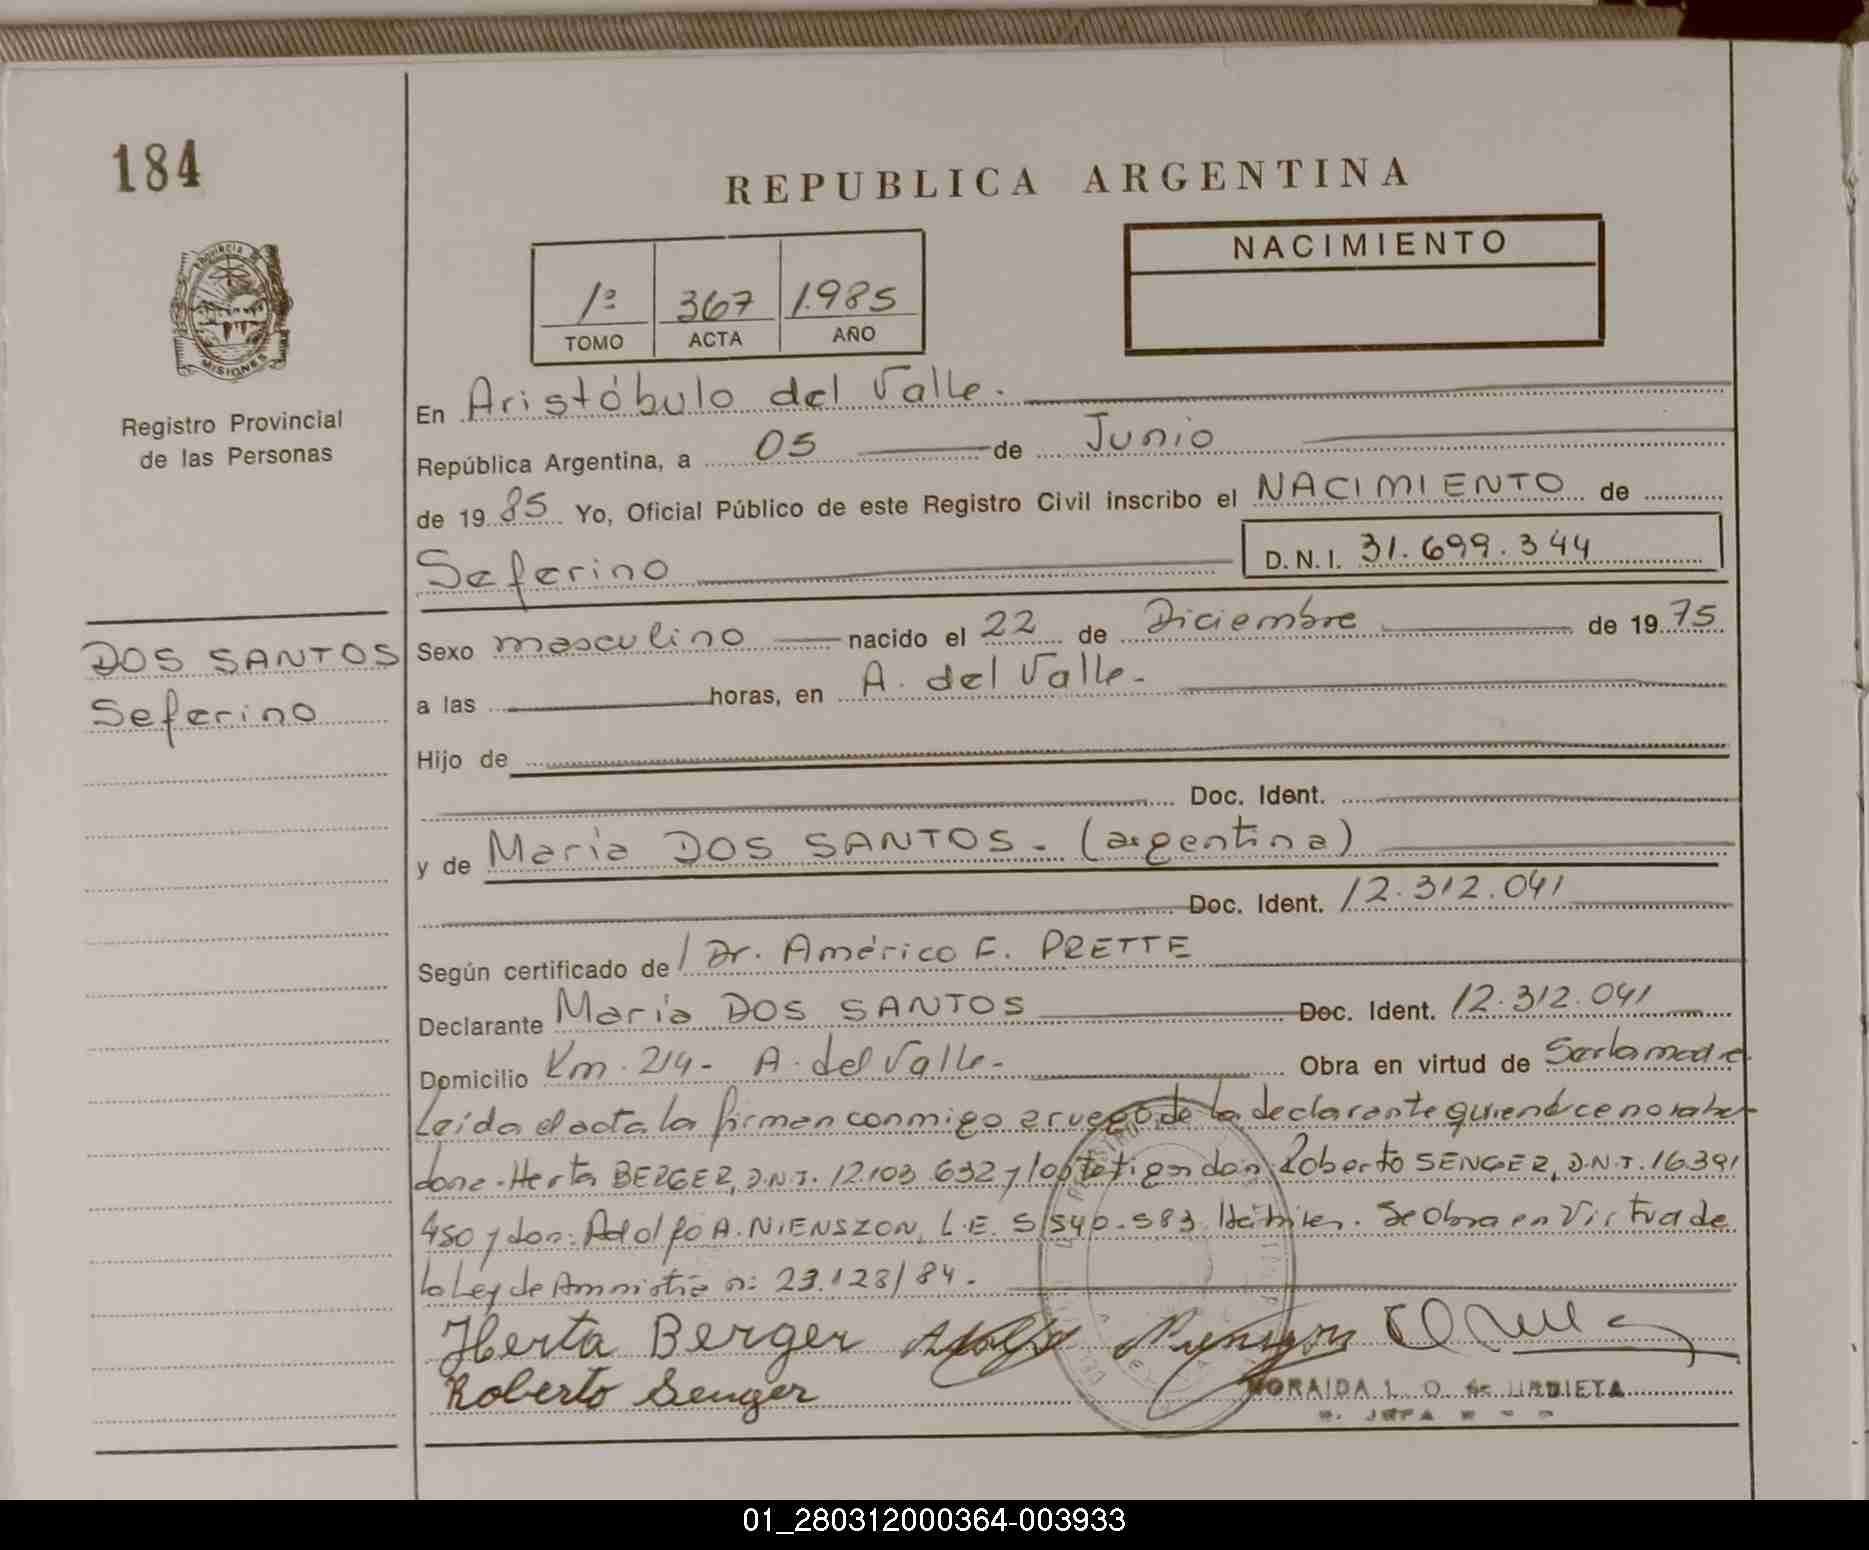 184
REPUBLICA ARGENTINA
NACIMIENTO
1º 367 1.985
TOMO ACTA AÑO
MISIONES
Registro Provincial
de las Personas
DOS SANTOS
Seferino
En Aristóbulo del Valle.
República Argentina, a 05 de Junio
de 1985 Yo, Oficial Público de este Registro Civil inscribo el NACIMIENTO de
Seferino D.N.I. 31.699.344
Sexo masculino nacido el 22 de Diciembre de 1975
a las horas, en A. del Valle.
Hijo de
Doc. Ident.
y de María DOS SANTOS. (argentina)
Doc. Ident. 12.312.041
Según certificado de Dr. Américo F. PRETTE
Declarante María DOS SANTOS Doc. Ident. 12.312.041
Domicilio Km. 214- A. del Valle- Obra en virtud de Ser la madre
Leída el acta la firman conmigo a ruego de la declarante quien dice no saber
doña- Herta BERGER, D.N.I. 12.103.632 y los testigos don: Roberto SENGER, D.N.I. 16.391
450 y don: Adolfo A. NIENSZON, L.E. 540.583 Se Obra en Virtud de
la Ley de Amnistía nº 23.128/84.
Herta Berger
Roberto Senger
L. O. de URDIETA
JEFA
01_280312000364-003933